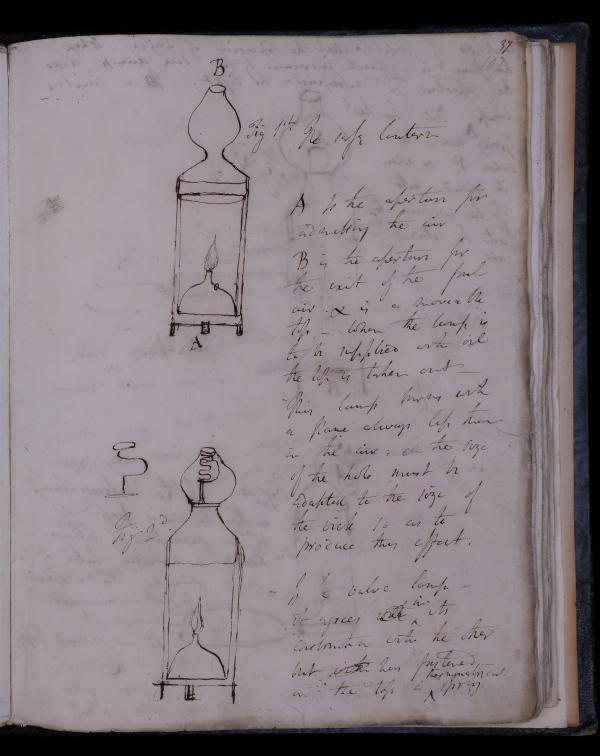 37
B
Fig 1st. The safe lantern
A is the aperture for
admitting the air
B is the aperture for
the exit of the foul
air. X is a moveable
top – when the lamp is
to be supplied with oil
the top is taken out –
This lamp burns with
a flame always less than
in the air: the size
of the hole must be
adapted to the size of
the wick so as to
produce this effect.
A
Fig 2d.
a valve lamp –
it agrees in its
construction with the other
but has fastened
on the top a thermometrical spring